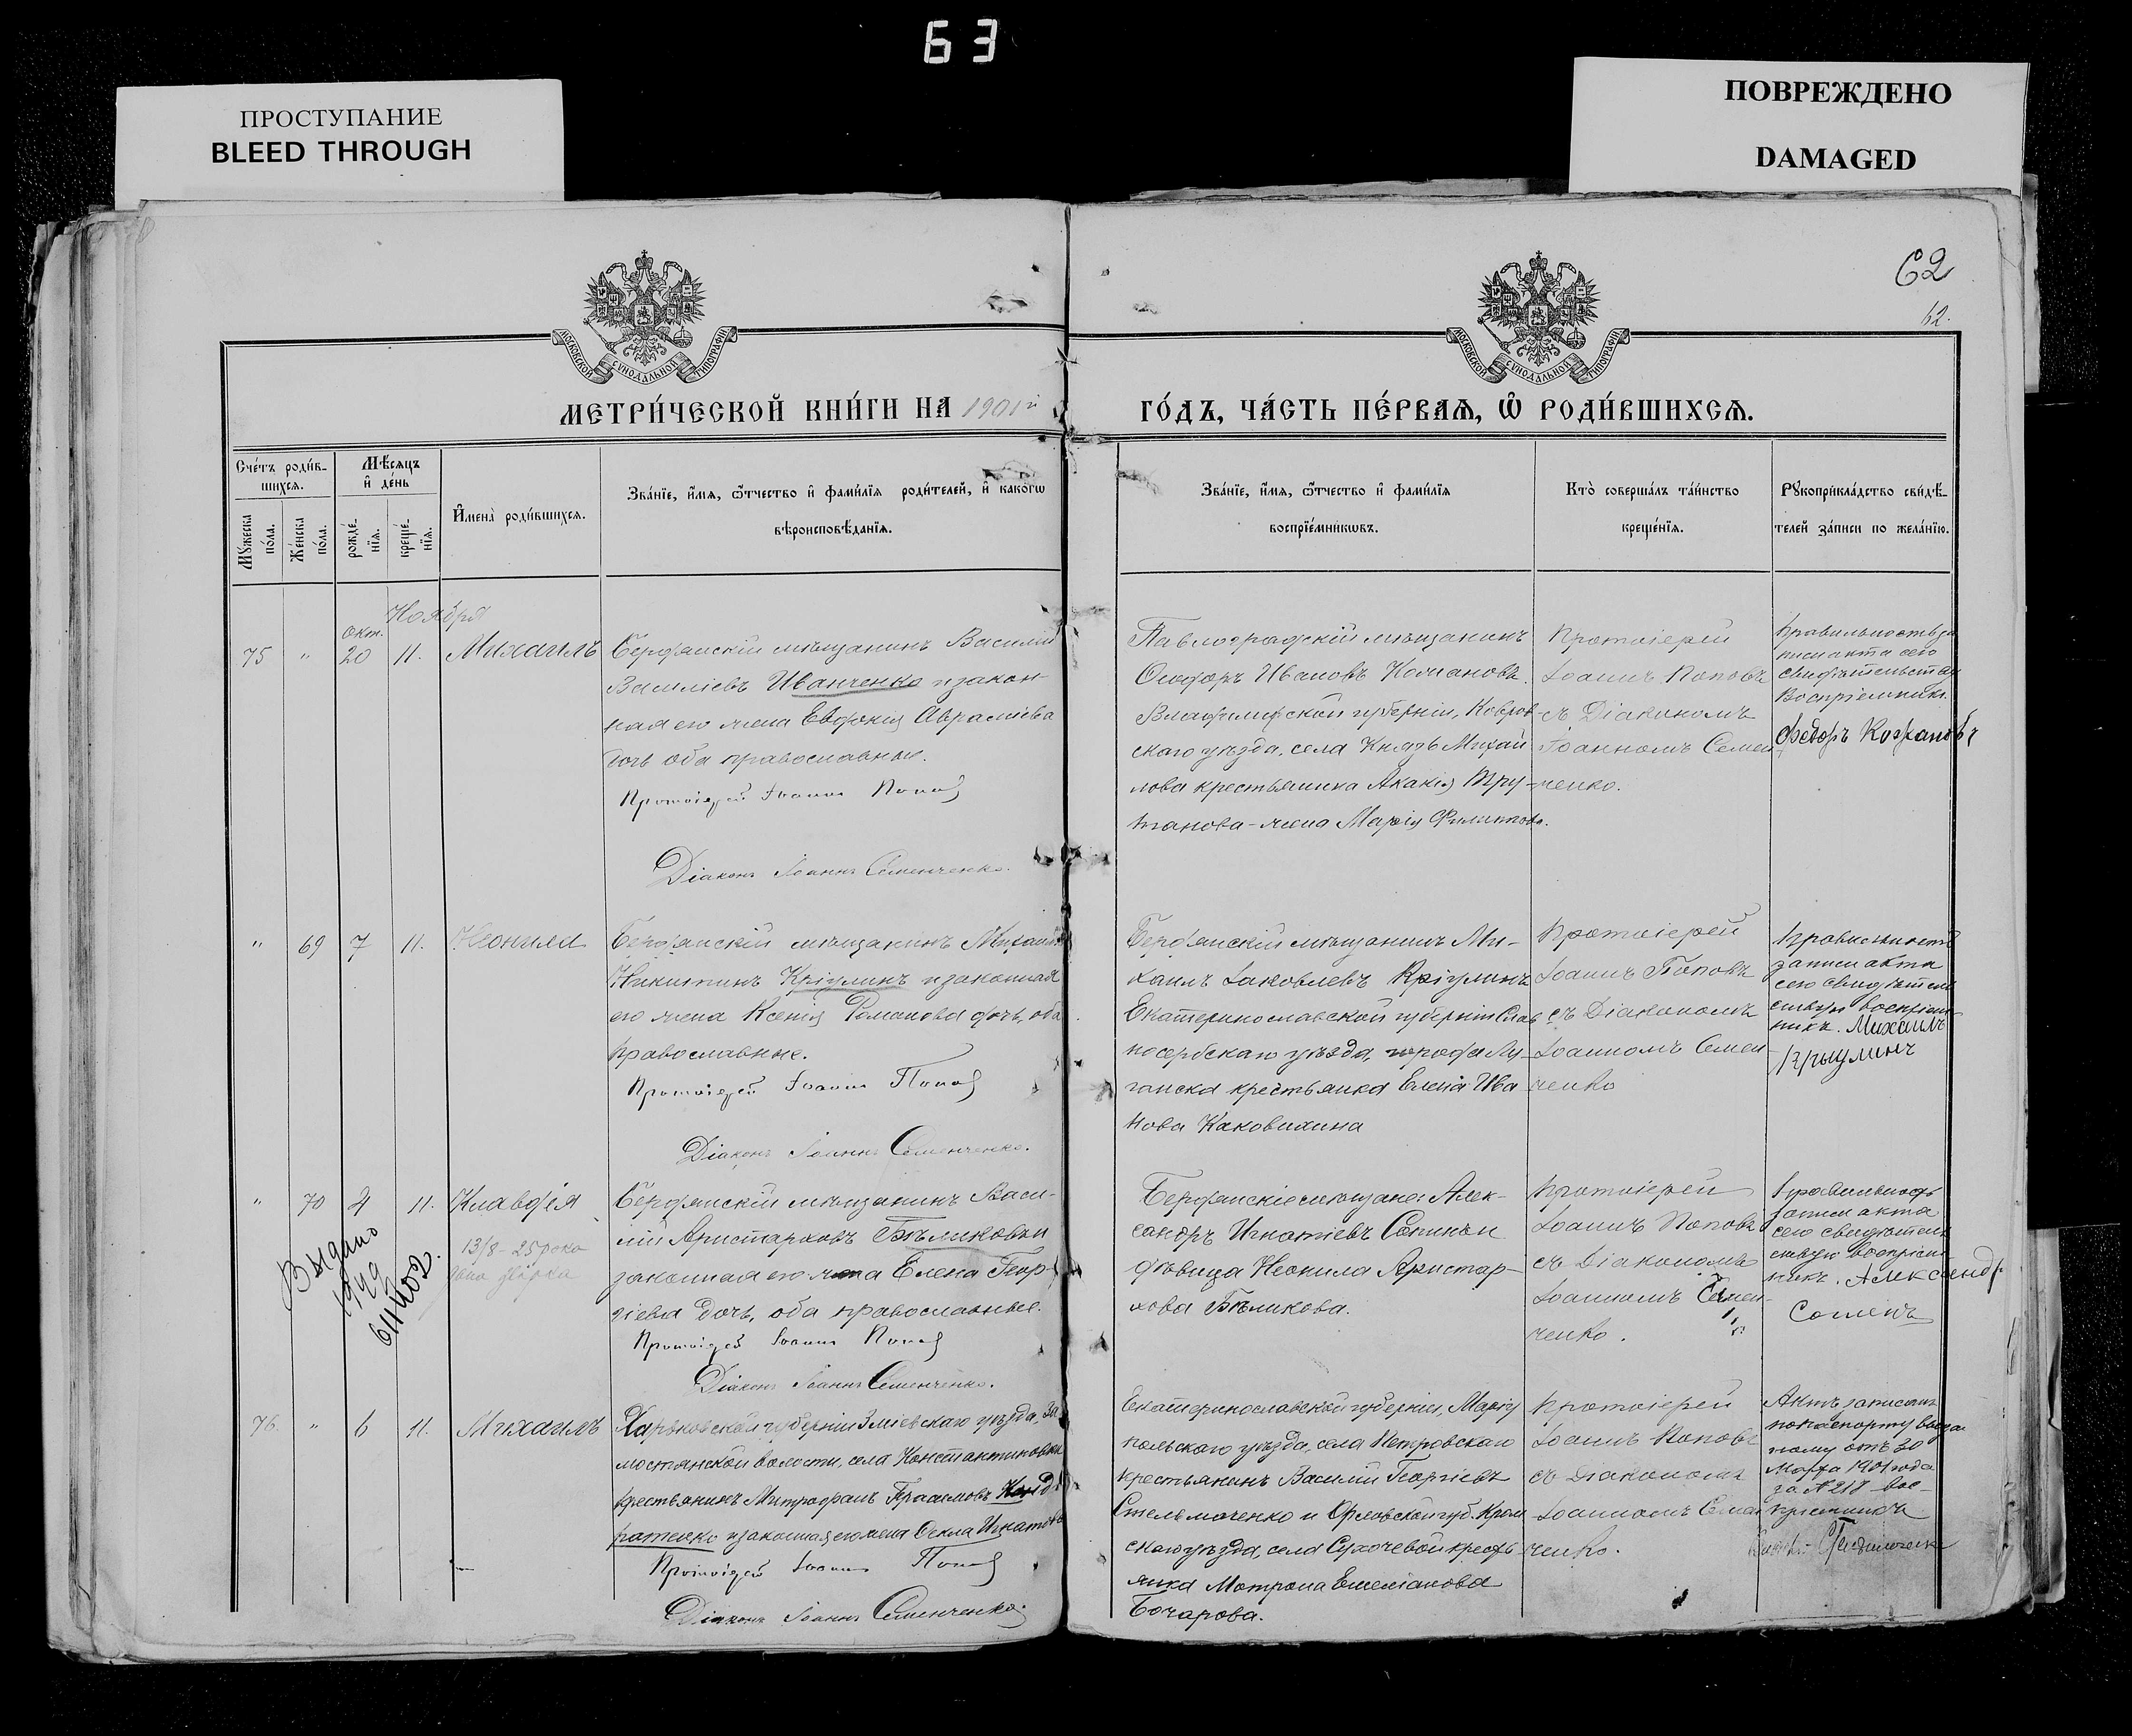 63
ПРОСТУПАНИЕ
BLEED THROUGH
ПОВРЕЖДЕНО
DAMAGED
62
62.
МОСКОВСКОЙ СѴНОДАЛЬНОЙ ТИПОГРАФІИ
МОСКОВСКОЙ СѴНОДАЛЬНОЙ ТИПОГРАФІИ
МЕТРИ́ЧЕСКОЙ КНИ́ГИ НА 1901й
ГО́ДЪ, ЧА́СТЬ ПЕ́РВАѦ, Ѽ РОДИ́ВШИХСѦ.
Сче́тъ роди́в-
шихсѧ.
Мѣ́сѧцъ
и҆ де́нь
Мꙋ́жеска по́ла.
Же́нска по́ла.
рожде́-
нїѧ.
креще́-
нїѧ.
И҆мена̀ роди́вшихсѧ.
Зва́нїе, и҆́мѧ, ѻ҆́тчество и҆ фами́лїѧ роди́телей, и҆ како́гѡ
вѣроисповѣ́данїѧ.
Зва́нїе, и҆́мѧ, ѻ҆́тчество и҆ фами́лїѧ
воспрїе́мникѡвъ.
Кто̀ соверша́лъ та́инство
креще́нїѧ.
Рꙋкоприкла́дство свидѣ́-
телей за́писи по жела́нїю.
Ноября
Окт.
75 " 20 11. Михаилъ
Бердянскій мѣщанинъ Василій
Василіевъ Иванченко и закон-
ная его жена Евдокія Авраміева
дочь оба православные.
Протоіерей Іоаннъ Попов
Діаконъ Іоаннъ Семенченко.
Павлоградскій мѣщанинъ
Ѳеодоръ Ивановъ
Владимирской губерніи, Ковров-
скаго уѣзда, села Князь Михай
лова крестьянина Акакія Тру-
танова - жена Марія Филиппова.
Протоіерей
Іоаннъ Поповъ
съ Діакономъ
Іоанномъ Семен
ченко.
Правильность за
писи акта сего
свидѣтельствую
Воспріемникъ
Федоръ
" 69 7 11. Неонила
Бердянскій мѣщанинъ Михаилъ
Никитинъ Кріулинъ и законная
его жена Ксенія Романова дочь, оба
православные.
Протоіерей Іоаннъ Попов
Діаконъ Іоаннъ Семенченко.
Бердянскій мѣщанинъ Ми-
хаилъ Іаковлевъ Кріулинъ
Екатеринославской губерніи Слав
яносербскаго уѣзда, города Лу-
ганска крестьянка Елена Ива
нова Каковихина
Протоіерей
Іоаннъ Поповъ
съ Діакономъ
Іоанномъ Семен
ченко
Правильность
записи акта
сего свидѣтель
ствую воспріем-
никъ. Михаилъ
Крыулинъ
" 70 4 11. Клавдія
Бердянскій мѣщанинъ Васи-
лій Аристарховъ Бѣликовъ и
законная его жена Елена Геор-
гіева дочь, оба православные.
Протоіерей Іоаннъ Попов
Діаконъ Іоаннъ Семенченко.
13/8 - 25 року
Выдано
1949
Бердянскіе мѣщане: Алек-
сандръ Игнатіевъ и
дѣвица Неонила Аристар-
хова Бѣликова.
Протоіерей
Іоаннъ Поповъ
съ Діакономъ
Іоанномъ Семен-
ченко.
Правильность
записи акта
сего свидѣтель
ствую воспріем-
никъ. Александр
76. " 6 11. Михаилъ
Харьковской губерніи Зміевскаго уѣзда, За
мостянской волости, села Константиновки
крестьянинъ Митрофанъ Герасимовъ Конд
ратенко и законная его жена Ѳекла Игнатова
Протоіерей Іоаннъ Попов
Діаконъ Іоаннъ Семенченко.
Екатеринославской губерніи, Маріу
польскаго уѣзда, села Петровскаго
крестьянинъ Василій Георгіевъ
Стельмаченко и Орловской губ. Кром
скаго уѣзда, села Сухочевой кресть
янка Матрона Емеліанова
Бочарова.
Протоіерей
Іоаннъ Поповъ
съ Діакономъ
Іоанномъ Семен
ченко.
Актъ записанъ
по паспорту выдан
ному отъ 30
Марта 1901 года
за № 218 - вос-
пріемникъ